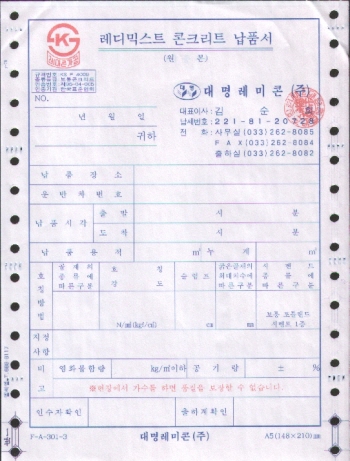 레디믹스트 콘크리트 납품서
(원 본)
NO.
대명레미콘 (주)
년 월 일
대표이사: 김 순
귀하
납세번호: 221-81-20728
전 화: 사무실 (033) 262-8085
FAX (033) 262-8084
출하실 (033) 262-8082
납품장소
운반차번호
납품시각 출발 시 분
도착 시 분
납품용적 m³ 누계 m³
호칭방법 콘크리트의 종류에 따른구분 호칭강도 슬럼프 굵은골재의 최대치수에 따른구분 시멘트 종류에 따른구분
N/㎟(kgf/㎠) cm mm 보통 포틀랜드 시멘트 1종
지정
사항
비고 염화물함량 kg/m³이하 공기량 ± %
※현장에서 가수를 하면 품질을 보장할 수 없습니다.
인수자확인 출하계확인
F-A-301-3 대명레미콘(주) A5(148×210)